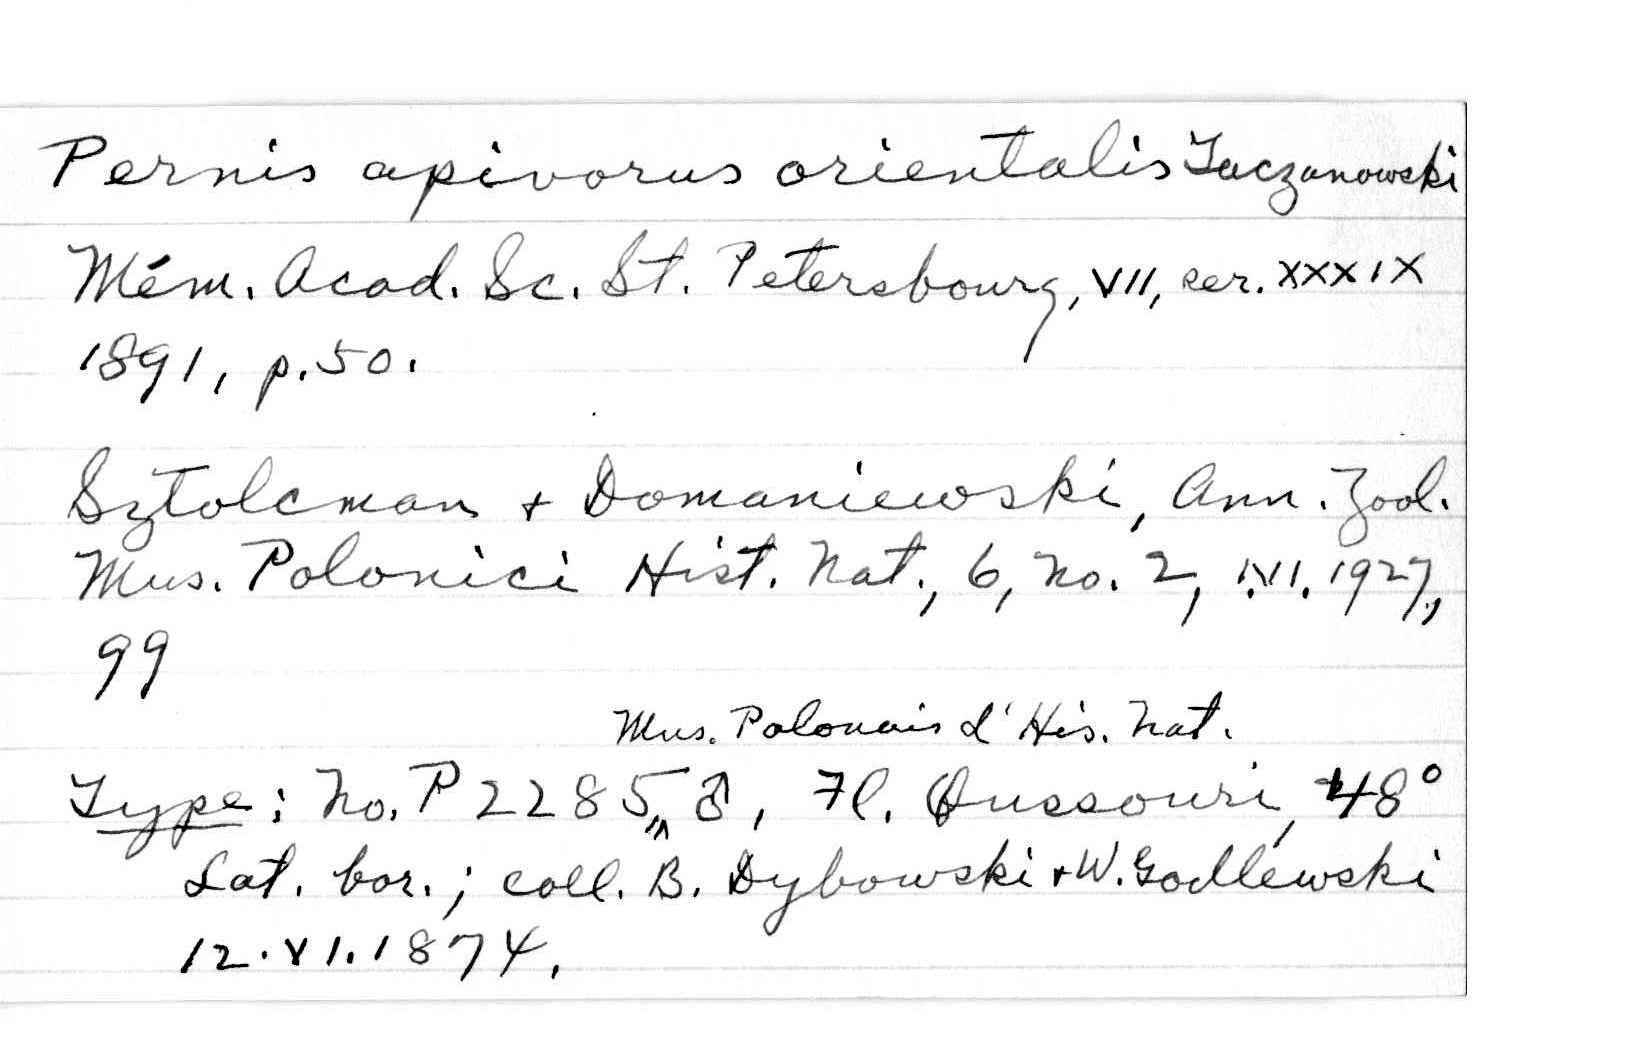 Pernis apivorus orientalis Taczanowski
Mém. Acad. Sc. St. Petersbourg, VII, ser. XXXIX
1891, p. 50.
Sztolcman + Domaniewski, Ann. Zool.
Mus. Polonici Hist. Nat., 6, No. 2, 1927,
99
Mus. Polonais d'His. Nat.
Type: No. P 2285, ♂, Fl. Oussouri, 48°
Lat. bor.; coll. B. Dybowski + W. Godlewski
12.VI.1874.